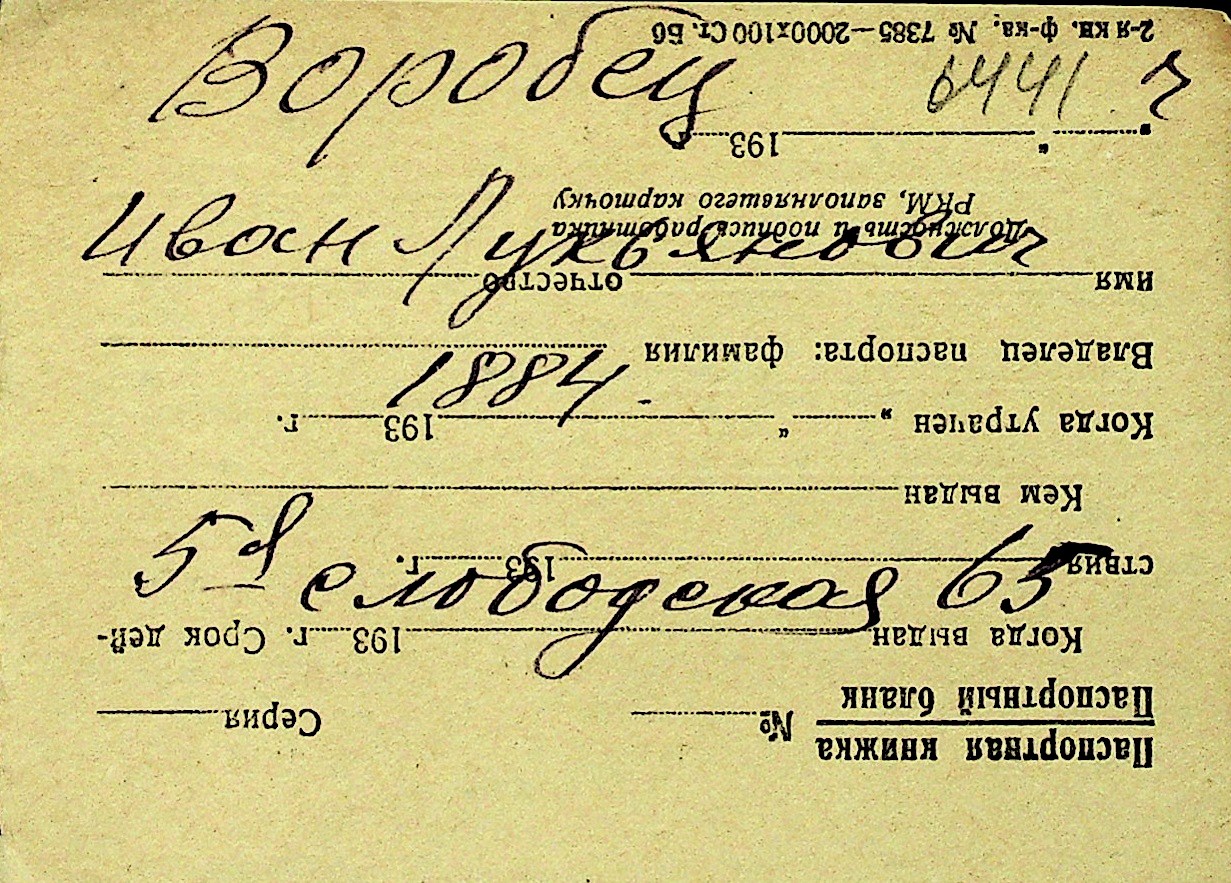 Воробец
6441 ч
Иван Лукьянович
1884.
5я слободская 65
Паспортная книжка
Паспортный бланк
№ Серия
Когда выдан 193 г. Срок дей-
ствия 193 г.
Кем выдан
Когда утрачен „ “ 193 г.
Владелец паспорта: фамилия
имя отчество
Должность и подпись работника
РКМ, заполнявшего карточку
„ “ 193 г.
2-я кн. ф-ка. № 7385—2000х100 Ст. Б6